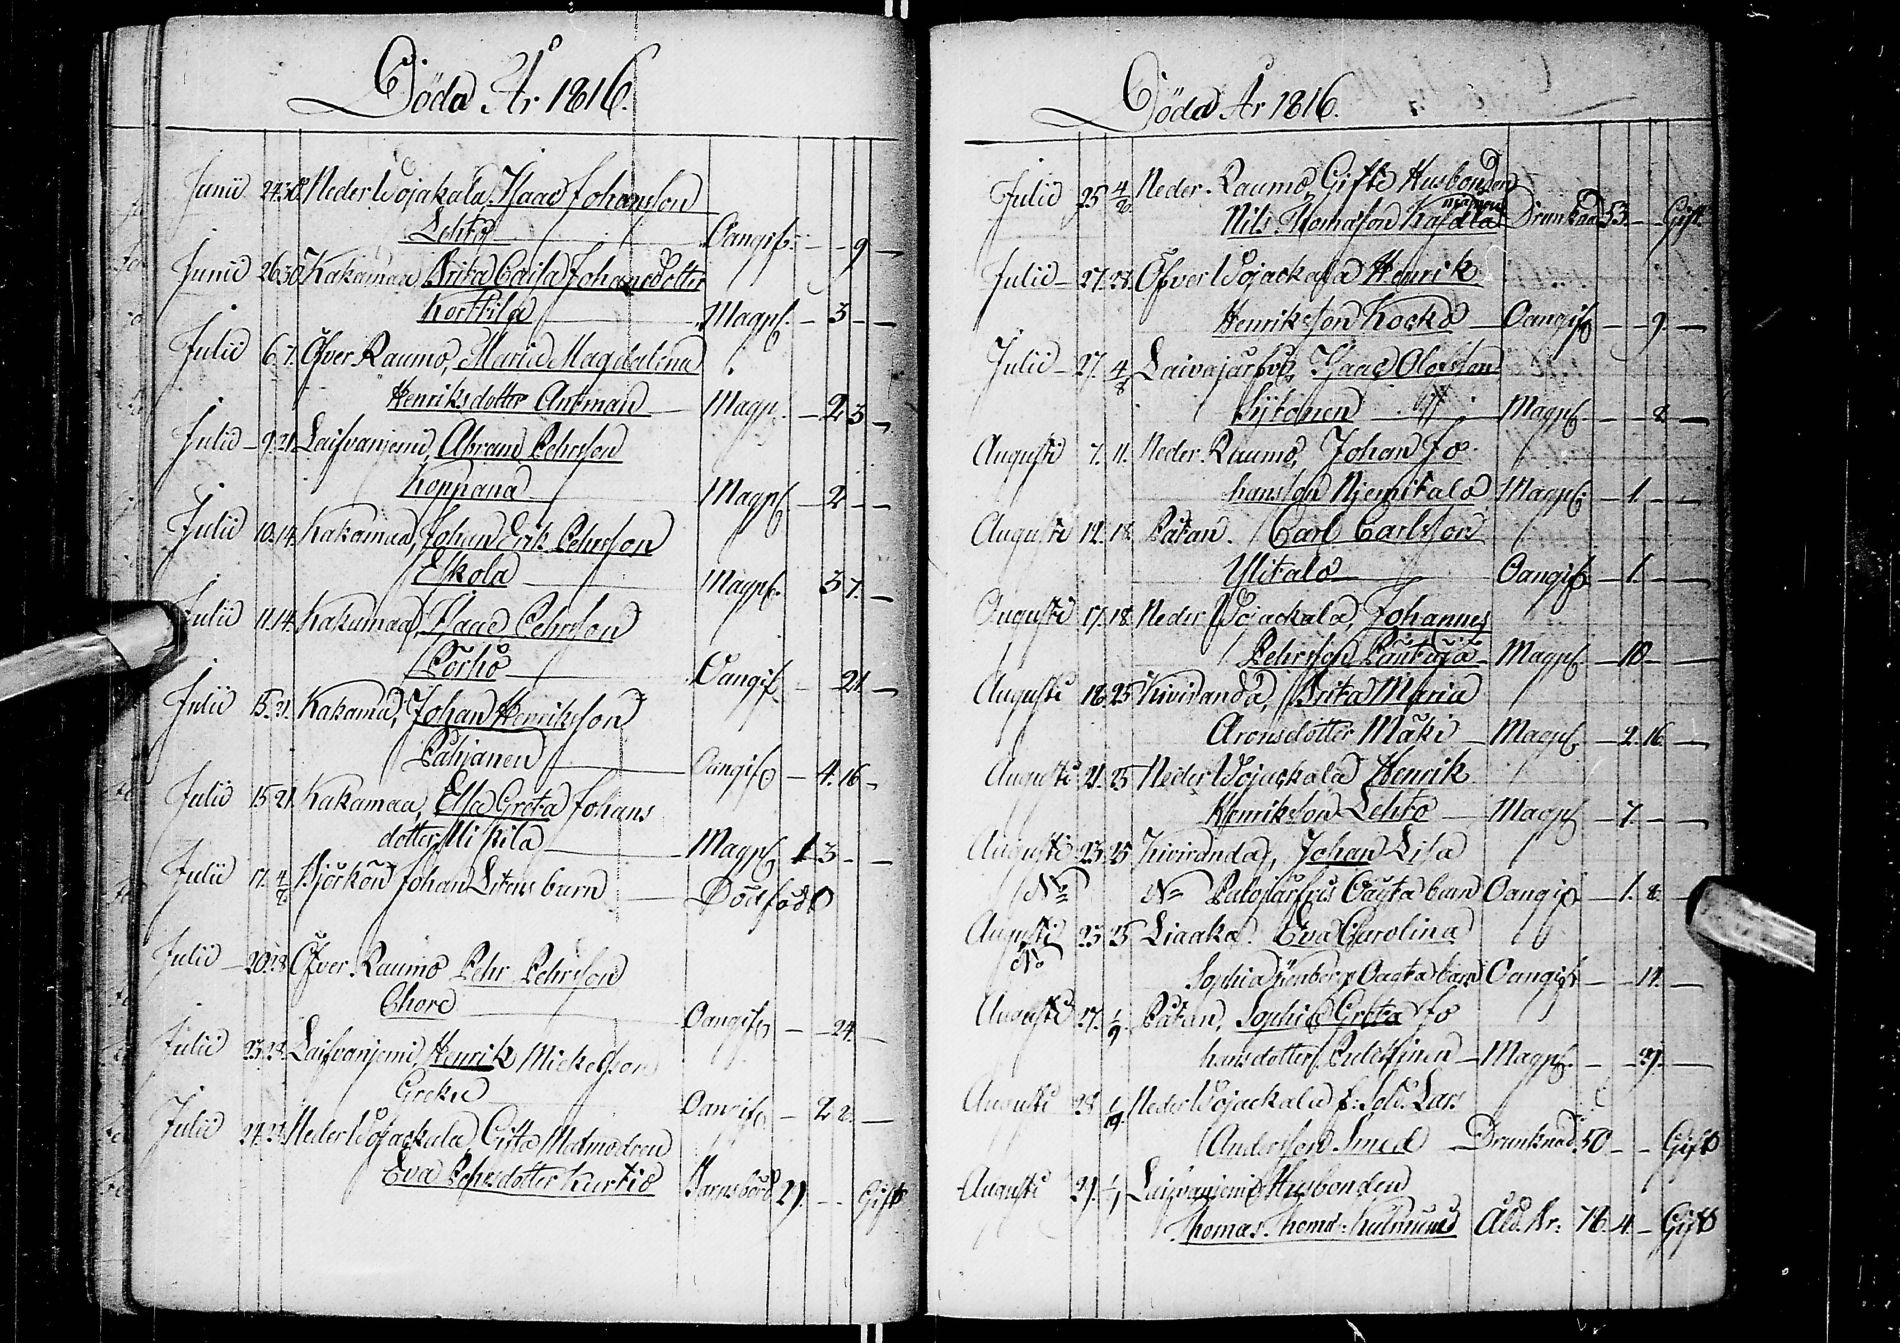 Döda År 1816.
Junii 24 30 Neder Wojakala, Isaac Johansson
Lehto Oangifv: - - 9 -
Junii 26 30 Kakamaa Brita Cajsa Johansdotter
Korttila Magpl. - 3 - -
Julii 6 7 Öfver Raumo, Maria Magdalena
Henriksdotter Antman Magpl. - 2 3 -
Julii 9. 21. Laifvaniemi, Abram Pehrsson
Koppana Magpl. - 2 - -
Julii 10. 14. Kakamaa, Johan Erik Pehrsson
Eskola Magpl. 3 7. -
Julii 11. 14. Kakamaa, Isaac Pehrsson
Pörhö Oangif. - 21. -
Julii 15. 21. Kakama, Johan Henriksson
Pahjanen Oangifv - 4. 16 -
Julii 15 21. Kakamaa, Elsa Greta Johans
dotter Mikkila Magpl 1 3 - -
Julii 17. 4/8 Björkön Johan Litens barn Dödfödt
Julii 20. 28 Öfver Raumo Pehr Pehrsson
Choro Oangifv - 24. -
Julii 23. 28. Laifvaniemi, Henrik Mickelsson
Greku Oangifv - 2 2. -
Julii 24. 28. Neder Wojackala Gifta Matmodren
Eva Pehrsdotter Kurtio Barnsbörd 29. - - Gift
Döda År 1816.
Julii 25 4/8 Neder Raumo, Gifte Husbonden
Nils Thomasson Kasala Drunknad 53. - - Gift
Julii 27. 28. Öfver Wojackala Henrik
Henriksson Kocko Oangifv - - 9 -
Julii 27. 4/8 Laivajärfvi, Isaac Olofsson
Sytonen Magpl. - - 2 -
Augusti 7. 11. Neder Raumo, Johan Jo
hansson Niemitalo Magpl. - 1. - -
Augusti 12. 18. Pätan. Carl Carlsson
Ylitalo Oangifv. - 1. - -
Augusti 17. 18. Neder Wojackala, Johannes
Pehrsson Pautaja Magpl. - 10 - -
Augusti 18 25 Kiviranda, Brita Maria
Aronsdotter Mäki Magpl. - 2. 16. -
Augusti 21. 25 Neder Wojackala Henrik
Henriksson Lehto Magpl. - 7. - -
Augusti 23 25 Kiviranda, Johan Lisa
No No Palojärfvis Oägta barn Oangifv - 1. 2. -
Augusti 23 25 Liaaka. Eva Carolina
No Sophia Oägta barn Oangifv - - 14. -
Augusti 27. 1/9 Pätan, Sophia Greta Jo
hansdotter Pulckinen Magpl. - - 29. -
Augusti 28 1/9. Neder Wojackala f: Sold. Lars
Andersson Smed Drunknad 50 - - Gift
Augusti 29. 1/9 Laifvaniemi Husbonden
Thomas Thoms: Kulmund Åld. Kr: 76. 4. - Gift